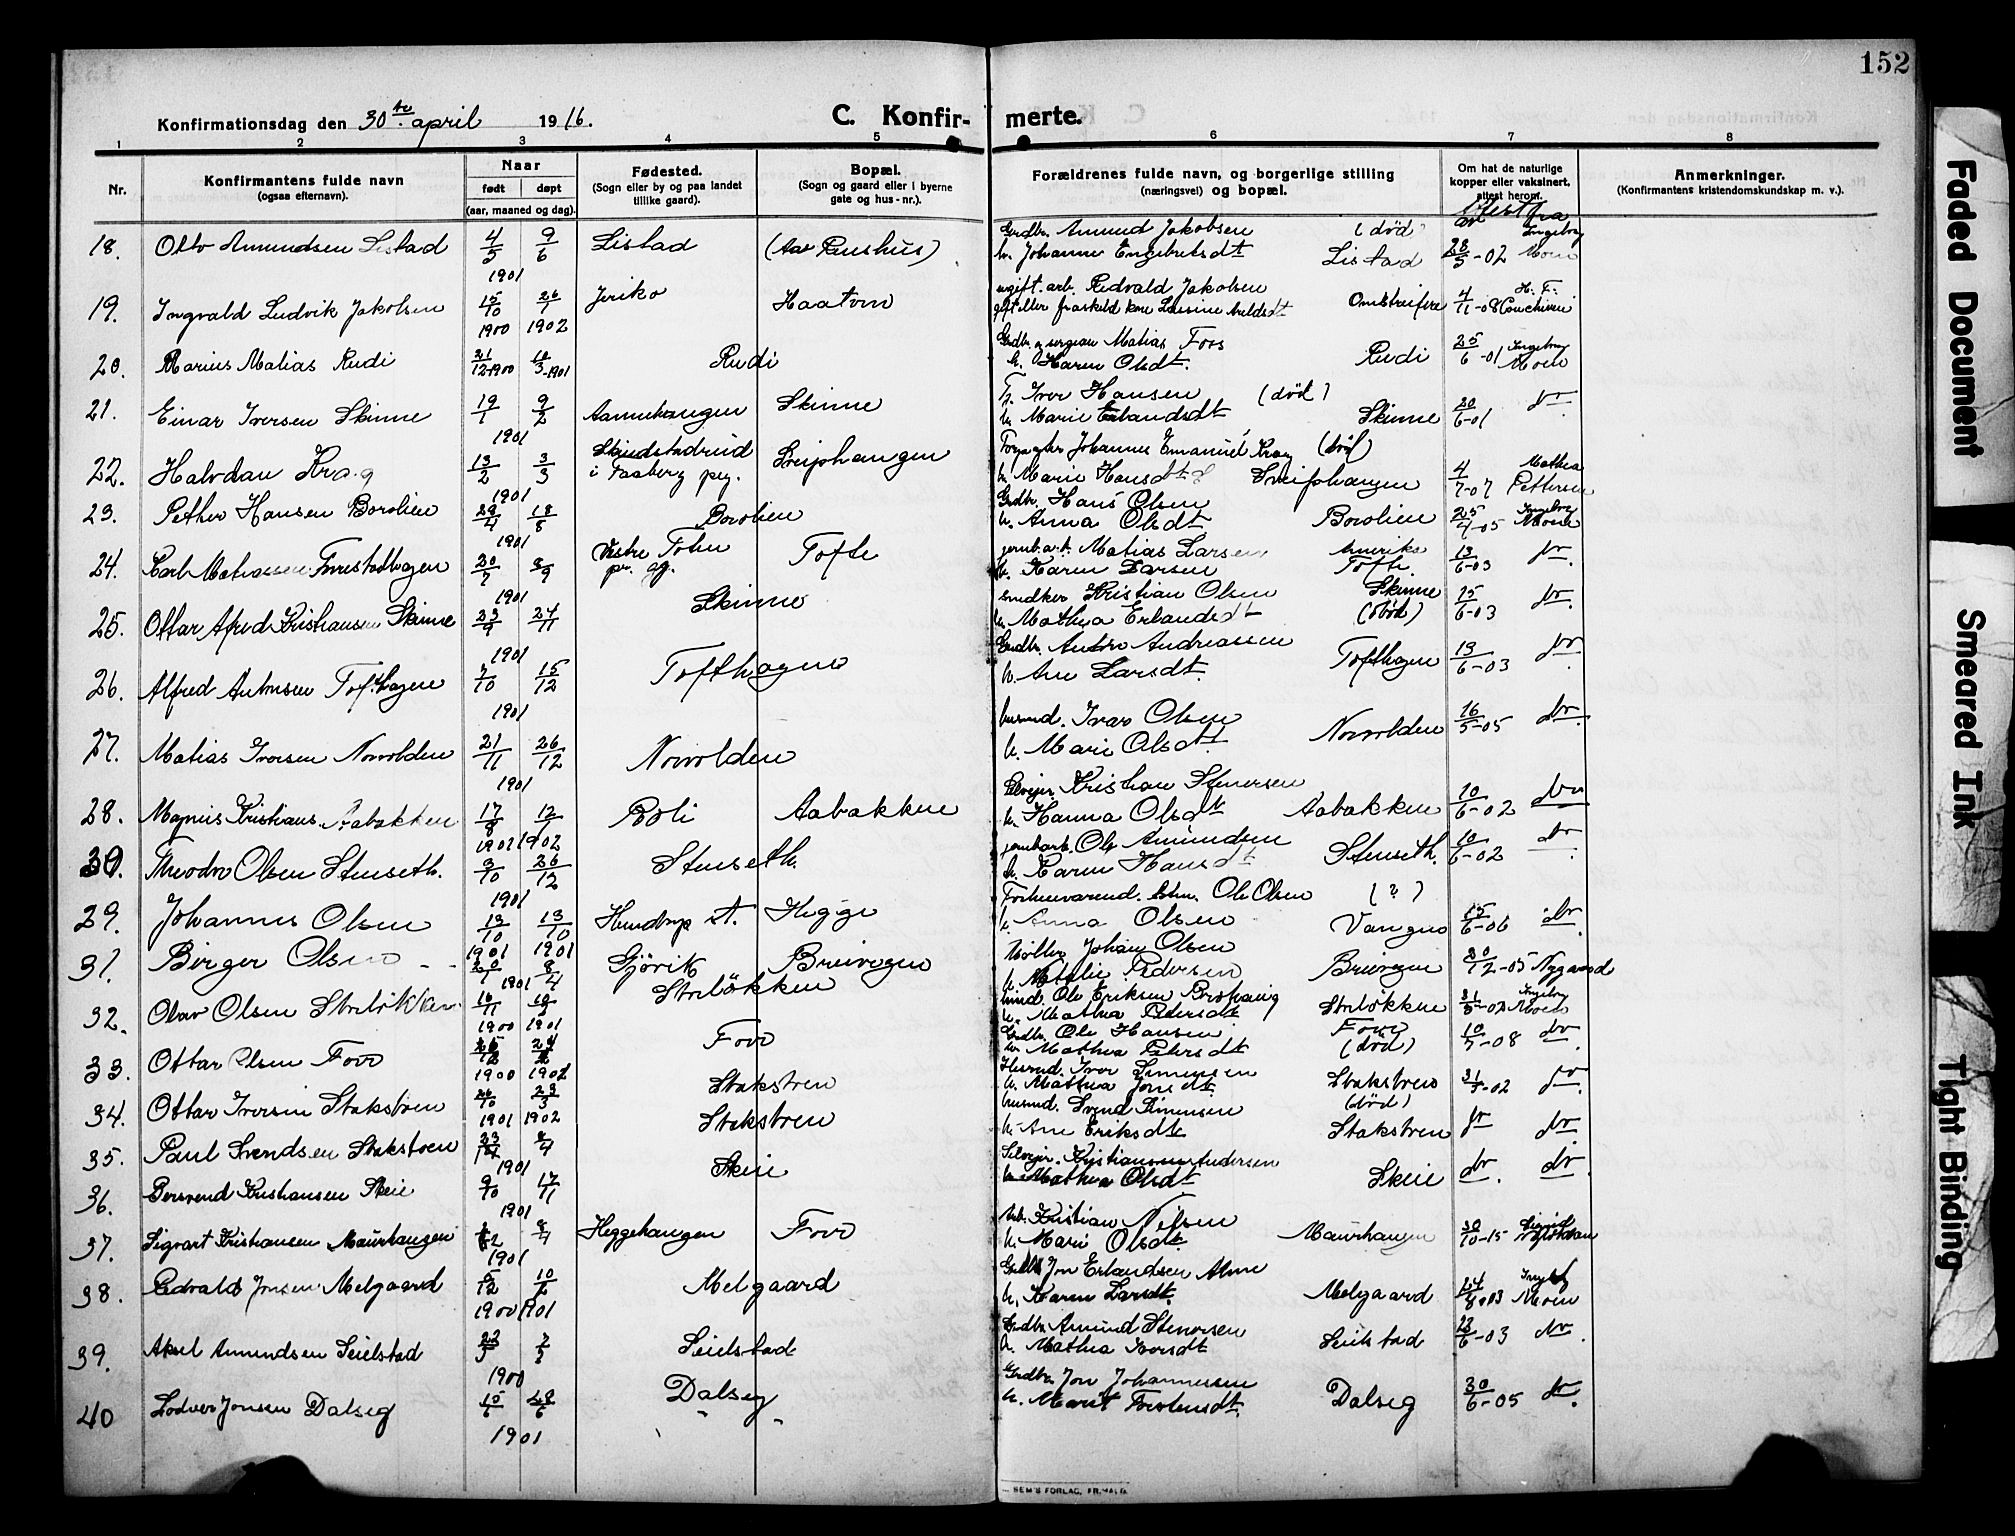 152
Konfirmationsdag den 30te april 1916.
C. Konfir- merte.
1 2 3 4 5 6 7 8
Nr.
Konfirmantens fulde navn
(ogsaa efternavn).
Naar
født døpt
(aar, maaned og dag).
Fødested.
(Sogn eller by og paa landet
tillike gaard).
Bopæl.
(Sogn og gaard eller i byerne
gate og hus-nr.).
Forældrenes fulde navn, og borgerlige stilling
(næringsvei) og bopæl.
Om hat de naturlige
kopper eller vaksinert,
attest herom.
Anmerkninger.
(Konfirmantens kristendomskundskap m. v.).
Attest fra
18. Otto Amundsen Listad 4/5 9/6 1901 Listad Grdbr. Amund Jakobsen (død)
h. Johanne Engebretsdt Listad 28/5-02 Ingeborg Moen
19. Ingvald Ludvik Jakobsen 15/10 1900 26/1 1902 Jeriko Haatvin ugift. arb. Edvald Jakobsen
Omstreifere 4/11-08 H. F.
20. Marius Matias Rudi 21/12-1900 10/3-1901 Rudi Matias Foss
h. Karen Olsdt. Rudi 25/6-01 Ingeborg Moen
21. Einar Iversen Skinne 19/1 9/2 1901 Aannehaugen Skinne F. Iver Hansen (død)
h. Marie Erlandsdt Skinne 20/6-01 do
22. Halvdan Krag 13/2 3/3 1901 i Faaberg pgj. Sveiphaugen Forpagter Johannes Emanuel Krag (død)
h. Marie Hansdt Sveiphaugen 4/7-07 Mathea Pettersen
23. Petter Hansen Borolien 29/4 18/8 1901 Borolien Grdbr. Hans Olsen
h. Anna Olsdt Borolien 25/4-05 Ingeborg Moen
24. Karl Matiassen 20/7 8/9 1901 Vestre Toten pr. gj. Tofte jernb.arb. Matias Larsen Amerika
h. Karen Larsen Tofte 13/6-03 do.
25. Ottar Alfred Kristiansen Skinne 23/9 24/11 1901 Skinne Snedker Kristian Olsen Skinne
h. Mathea Erlandsdt (død) 15/6-03 do.
26. Alfred Antonsen Tofthagen 7/10 15/12 1901 Tofthagen Grdbr. Anton Andreassen
h. Ane Larsdt. Tofthagen 13/6-03 do.
27. Matias Iversen Norvolden 21/11 26/12 1901 Norvolden husmd. Ivar Olsen
h. Marie Olsdt. Norvolden 16/5-05 do.
28. Magnus Kristians. Aabakken 17/8 1901 12/1 1902 Roli Aabakken Selveier Kristian Stenersen
h. Hanna Olsdt Aabakken 10/6-02 do
30. Theodor Olsen Stenseth. 9/10 26/12 1901 Stenseth. jernb.arb. Ole Amundsen
h. Karen Hansdt Stenseth. 10/6-02 do.
29. Johannes Olsen 13/10 1901 13/10 1901 Hundorp st. Hegge Forhenværend. Ole Olsen (?)
h. Anna Olsen Vangen 15/6-06 do.
31. Birger Olsen 20/1 8/4 1901 Gjøvik Breivegen Møller Johan Olsen
h. Natalie Pedersen Breivegen 20/12-05 Nygaard
32. Olav Olsen Storløkken 10/11 1900 10/2 1901 Storløkken Ole Eriksen
h. Mathea Pedersdt Storløkken 31/5-02 Ingeborg Moen
33. Ottar Olsen Foss 1900 24/2 1901 Foss Grdbr. Ole Hansen Foss
h. Mathea Pedersdt (død) 10/7-08 do
34. Ottar Iversen Stakstoen 26/10 1901 23/3 1902 Stakstoen Husmd. Iver Simensen
h. Mathea Jonsdt. Stakstoen 31/5-02 do.
35. Paul Svendsen Stakstoen 4/4 1901 Stakstoen husmd. Svend Simensen (død)
h. Ane Eriksdt Stakstoen do do.
36. Kristiansen Skeie 9/10 17/11 1901 Skeie Selveier. Kristian Andersen
h. Mathea Olsdt Skeie do. do.
37. Sigvart Kristiansen Maurhaugen 8/4 1901 Heggehaugen Foss Arb. Kristian Nilsen
h. Mari Olsdt. Maurhaugen 30/10-15
38. Edvald Jonsen Melgaard 5/12 1900 10/2 1901 Melgaard Grdbr. Jon Erlandsen
h. Karen Larsdt. Melgaard 24/8-03 Ingeborg Moen
39. Aksel Amundsen Seielstad 1900 Seielstad Grdbr. Amund Stenersen
h. Mathea Iversdt Seielstad 23/6-03 do.
40 Lodver Jonsen Dalseg 15/5 28/6 1901 Dalseg Grdbr. Jon Johannessen
h. Marit Torstensdt. Dalseg 30/6-05 do.
SEM'S FORLAG, FR.HALD.
Faded Document
Smeared Ink
Tight Binding